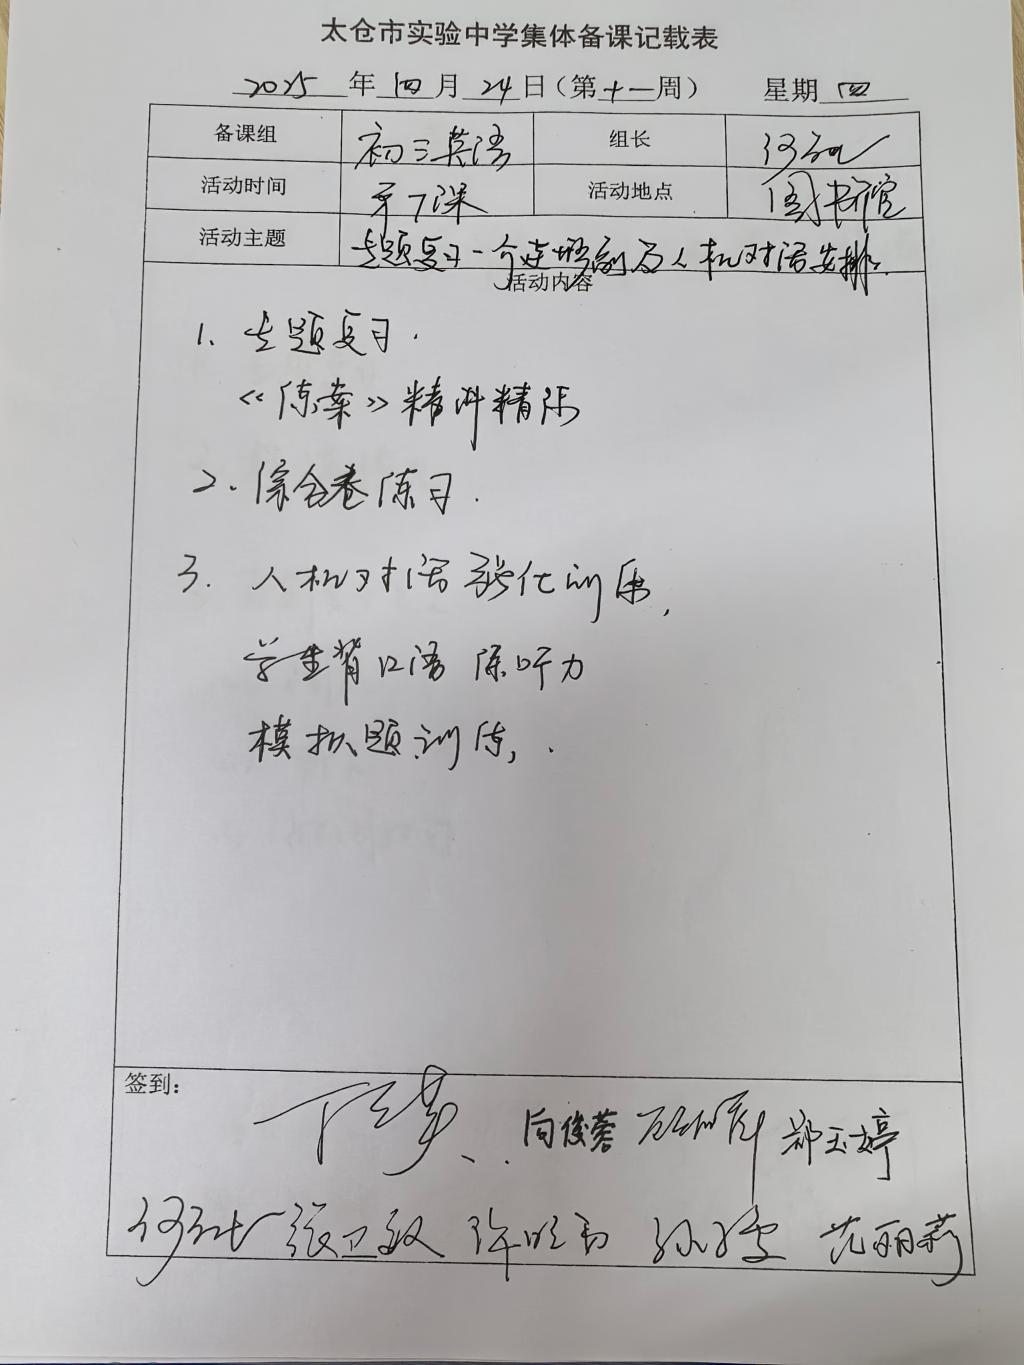 太仓市实验中学集体备课记载表
2025 年 四 月 24 日（第 十一 周） 星期 四
备课组 初三英语 组长
活动时间 第7课 活动地点 图书馆
活动主题 专题复习 及人机对话安排.
活动内容
1、专题复习.
《练案》精讲精练
2. 综合卷练习.
3. 人机对话强化训练,
学生背口语 练听力
模拟题训练,.
签到：
向俊蓉 郑玉婷
张卫敏 范丽莉